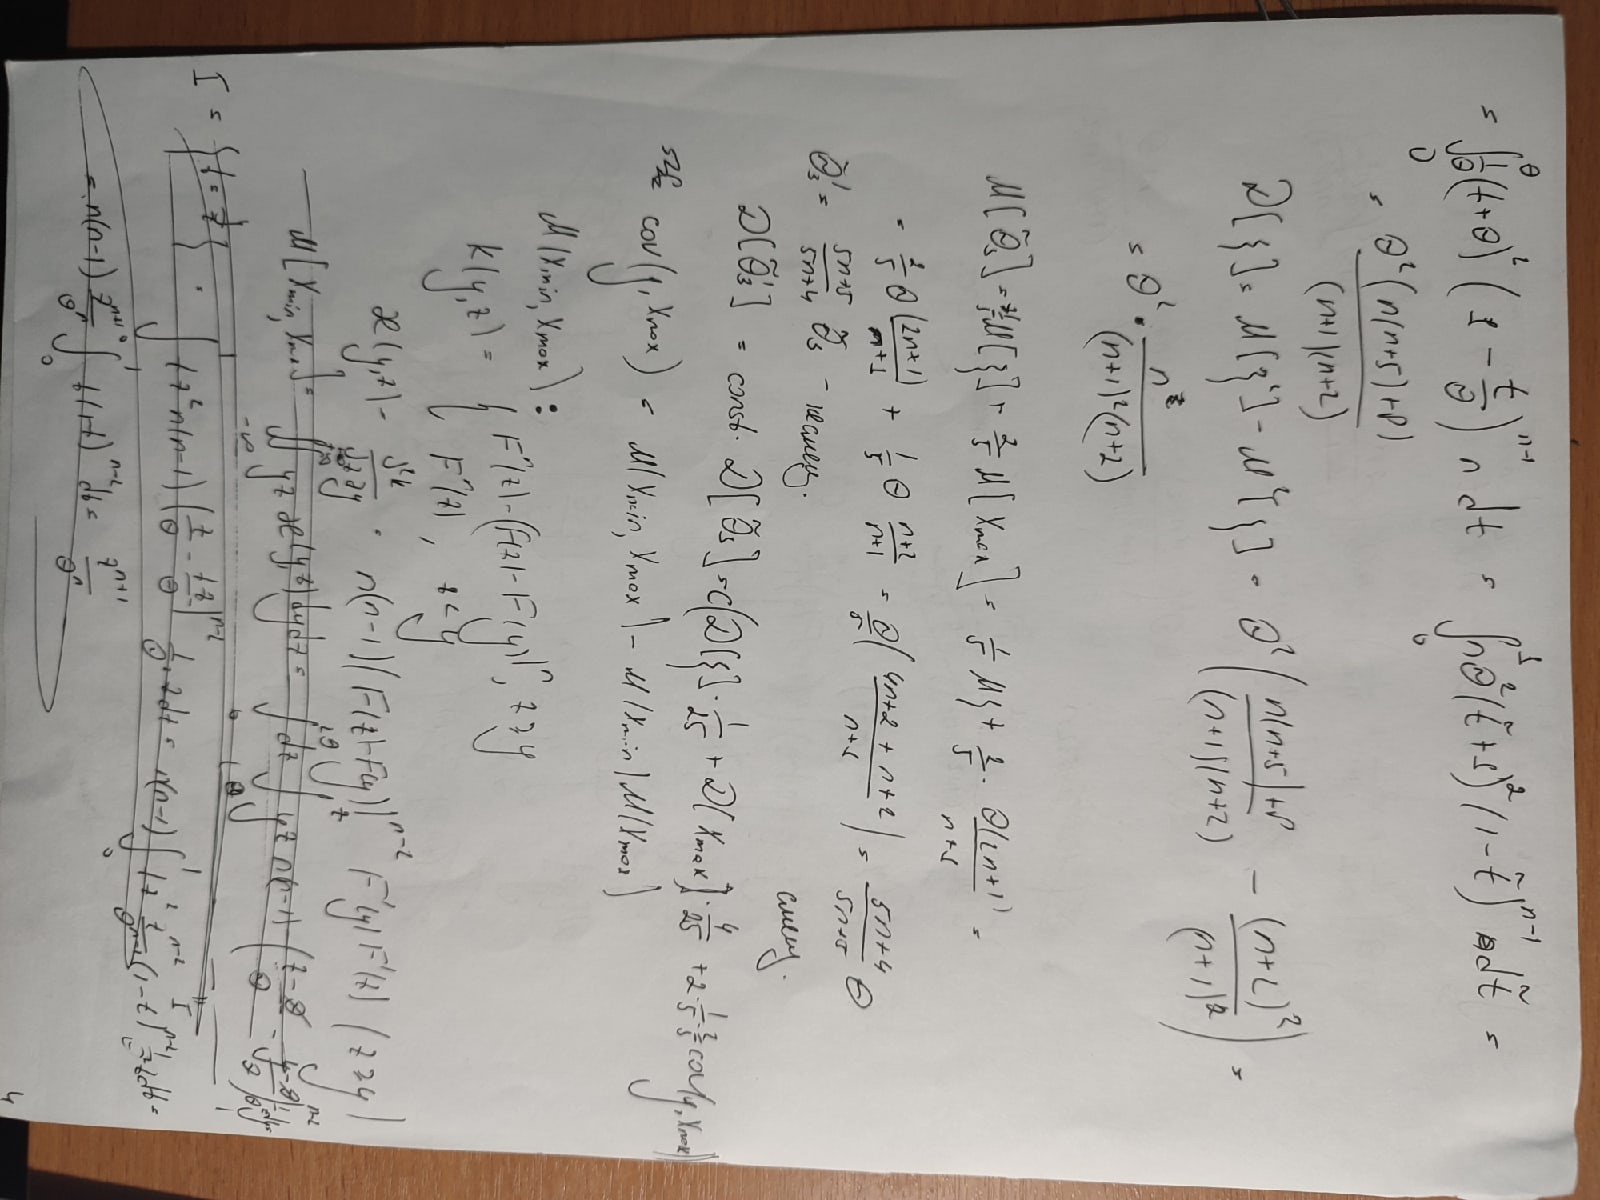 = ∫₀^θ 1/θ (t+θ)² (1 − t/θ)^{n-1} n dt = ∫₀¹ nθ² (t̃+1)² (1−t̃)^{n-1} dt̃ =
= θ²(n(n+5)+8) / (n+1)(n+2)
D[ξ] = M[ξ²] − M²[ξ] = θ² ( (n(n+5)+8) / (n+1)(n+2) − (n+2)² / (n+1)² ) =
= θ² · n / (n+1)²(n+2)
M[θ̃₃] = 1/5 M[ξ] + 2/5 M[Xmax] = 1/5 Mξ + 2/5 · θ(2n+1) / n+1 =
= 2/5 θ (2n+1) / n+1 + 1/5 θ n+2 / n+1 = θ/5 ( 4n+2+n+2 / n+1 ) = 5n+4 / 5n+5 θ
смещ.
θ̃₃' = 5n+5 / 5n+4 θ̃₃ – несмещ.
D[θ̃₃'] = const · D[θ̃₃] = C(D[ξ] · 1/25 + D[Xmax] · 4/25 + 2 · 1/5 · 2/5 cov(y, Xmax))
cov(y, Xmax) = M(Xmin, Xmax) − M(Xmin) M(Xmax)
M(Xmin, Xmax) :
K(y,z) = { Fⁿ(z) − (F(z) − F(y))ⁿ, z ≥ y
Fⁿ(z), z < y
æ(y,z) = ∂²k / ∂z∂y = n(n−1)(F(z)−F(y))^{n-2} F'(y) F'(z) (z ≥ y)
M[Xmin, Xmax] = ∬ yz æ(y,z) dydz = ∫ dz ∫ yz n(n−1) (z−θ / θ − y−θ / θ)^{n-2}
I = { t = y/z } = ∫ t z² n(n−1) (z/θ − tz/θ)^{n-2} 1/θ · z dt = n(n−1) ∫₀¹ t z² z^{n-2} / θ^{n-2} (1−t)^{n-2} z dt =
= n(n−1) z^{n+1} / θⁿ ∫₀¹ t(1−t)^{n-2} dt = z^{n+1} / θⁿ
4